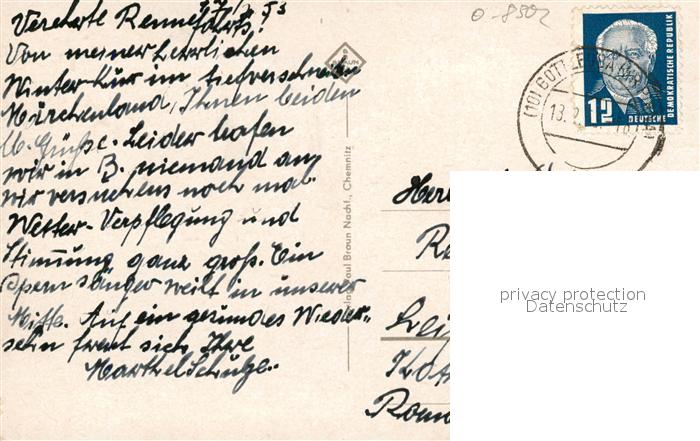 Verehrte Renne
fahrts!
Von meiner herrlichen
Winter-Kur im tiefverschneiten
Märchenland, Ihnen beiden
lb. Grüße. Leider trafen
wir in B. niemand an,
wir versuchens noch mal.
Wetter-Verpflegung und
Stimmung ganz groß. Ein
Opernsänger weilt in unserer
Mitte. Auf ein gesundes Wieder-
sehn freut sich Ihre
Marthel Schulze.
Paul Braun Nachf., Chemnitz
0-8502
12
DEUTSCHE
DEMOKRATISCHE REPUBLIK
(10) GOTTLEUBA
13.2.
Her
Re
Lei
Rom
privacy protection
Datenschutz